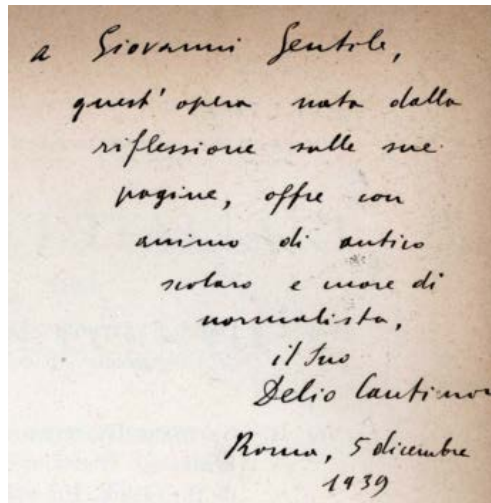 a Giovanni Gentile,
quest' opera nata dalla
riflessione sulle sue
pagine, offre con
animo di antico
scolaro e cuore di
normalista,
il Suo
Delio Cantimo
Roma, 5 dicembre
1939